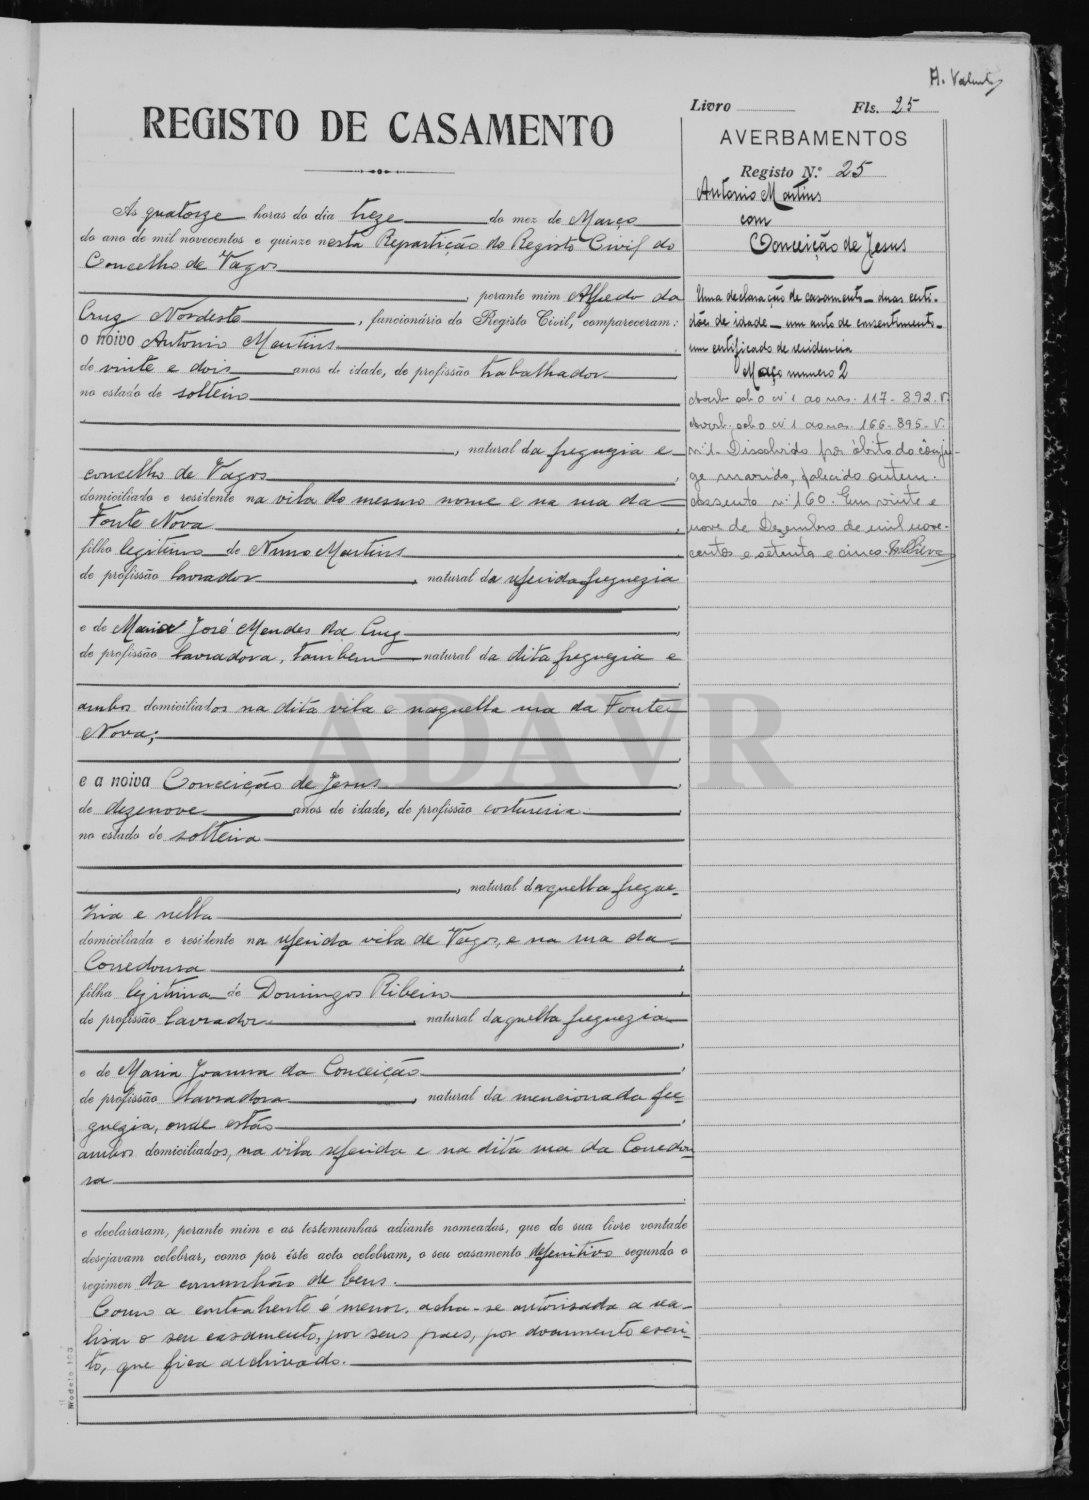 A. Valente
Livro
Fls. 25
REGISTO DE CASAMENTO
AVERBAMENTOS
Registo N.º 25
Antonio Martins
com
Conceição de Jesus
Uma declaração de casamento — duas certi-
dões de idade — um auto de consentimento —
um certificado de residencia
Maço numero 2
Averb. sob o nº 1 ao nas. 117 - 892 - V.
Averb. sob o nº 1 ao nas. 166 - 895 - V.
nº 1 - Dissolvido por óbito do cônju-
ge marido, falecido ontem.
Assento nº 160. Em vinte e
nove de Dezembro de mil nove-
centos e setenta e cinco.
Ás quatorze horas do dia treze do mez de Março
do ano de mil novecentos e quinze nesta Repartição do Registo Civil do
Concelho de Vagos
, perante mim Alfredo da
Cruz Nordeste, funcionário do Registo Civil, compareceram:
o noivo Antonio Martins
de vinte e dois anos de idade, de profissão trabalhador
no estado de solteiro
, natural da freguezia e
concelho de Vagos
domiciliado e residente na vila do mesmo nome e na rua da
Fonte Nova
filho legitimo de Nuno Martins
de profissão lavrador, natural da referida freguezia
e de Maria José Mendes da Cruz
de profissão lavradora, tambem natural da dita freguezia e
ambos domiciliados na dita vila e naquella rua da Fonte
Nova;
e a noiva Conceição de Jesus
de dezenove anos de idade, de profissão costureira
no estado de solteira
, natural daquella fregue-
zia e nella
domiciliada e residente na referida vila de Vagos, e na rua da
Corredoura
filha legitima de Domingos Ribeiro
de profissão lavrador, natural daquella freguezia
e de Maria Joanna da Conceição
de profissão lavradora, natural da mencionada fre-
guezia, onde estão
ambos domiciliados, na vila referida e na dita rua da Corredou-
ra
e declararam, perante mim e as testemunhas adiante nomeadas, que de sua livre vontade
desejavam celebrar, como por êste acto celebram, o seu casamento definitivo segundo o
regimen da comunhão de bens.
Como a contrahente é menor, acha-se autorisada a rea-
lisar o seu casamento, por seus paes, por documento escri-
to, que fica archivado.
Modelo 103
ADAVR